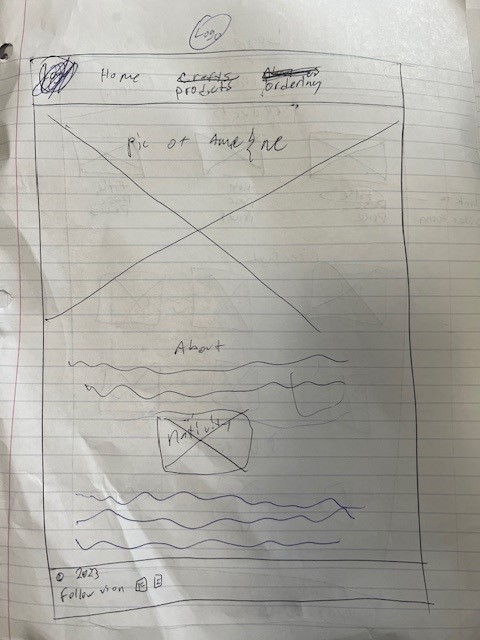 Logo
Home
crafts
products
ordering
Pic of
About
Nativity
© 2023
Follow us on